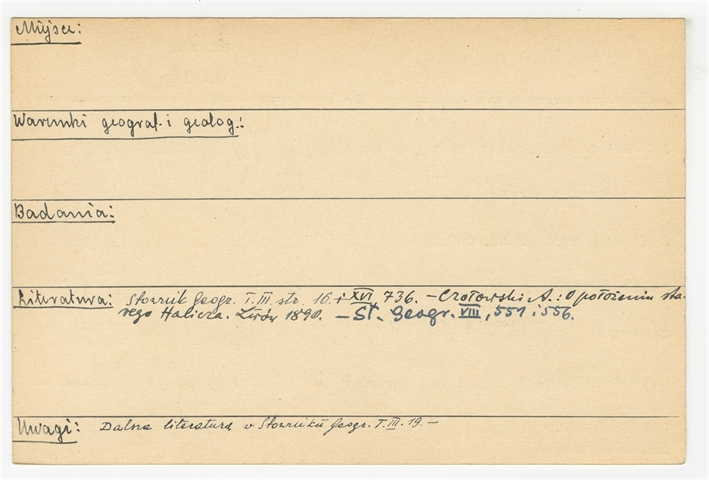 Miejsce:
Warunki geograf. i geolog.:
Badania:
Literatura: Słownik Geogr. T. III. str. 16. i XVI, 736. – Czołowski A.: O położeniu sta-
rego Halicza. Lwów 1890. – Sł. Geogr. VIII, 551 i 556.
Uwagi: Dalsza literatura w Słowniku Geogr. T. III. 19. –